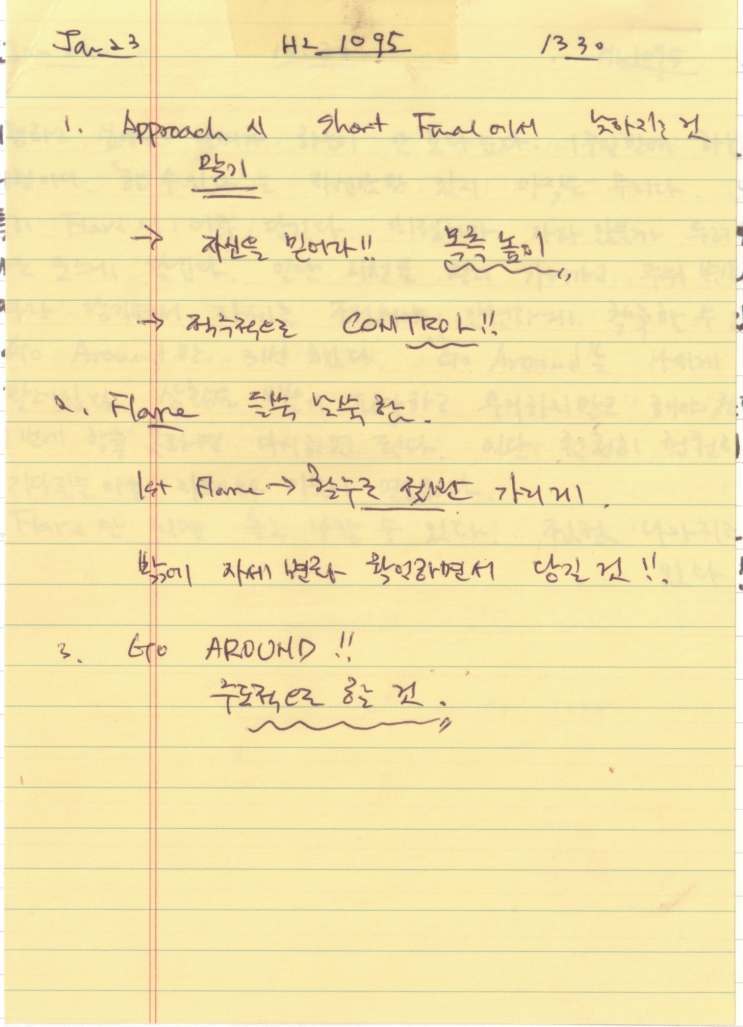 Jan 23 HL 1095 1330
1. Approach 시 Short Final에서 낮아지는 건
막기
→ 자신을 믿어라!! 목측 높이
→ 적극적으로 CONTROL!!
2. Flare 들쑥 날쑥 함.
1st Flare → 활주로 절반 가리게.
밖에 자세 변화 확인하면서 당길 것!!.
3. Go AROUND!!
주도적으로 할 것.